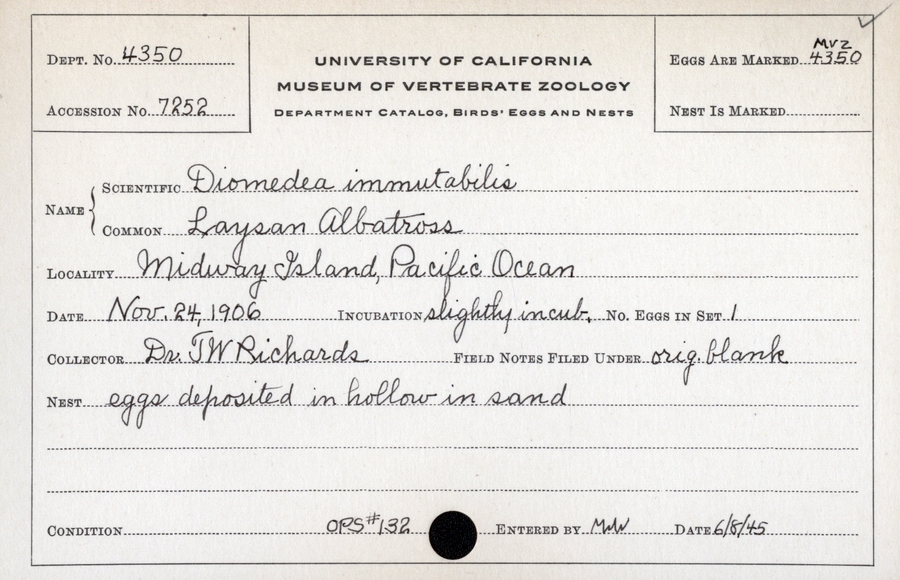 Dept. No. 4350
Accession No. 7252
University of California
Museum of Vertebrate Zoology
Department Catalog, Birds' Eggs and Nests
Eggs Are Marked MVZ 4350
Nest Is Marked
Name
Scientific Diomedea immutabilis
Common Laysan Albatross
Locality Midway Island, Pacific Ocean
Date Nov. 24, 1906 Incubation slightly incub. No. Eggs in Set 1
Collector Dr. TW Richards Field Notes Filed Under orig. blank
Nest eggs deposited in hollow in sand
Condition OPS#132 Entered by Date 6/8/45